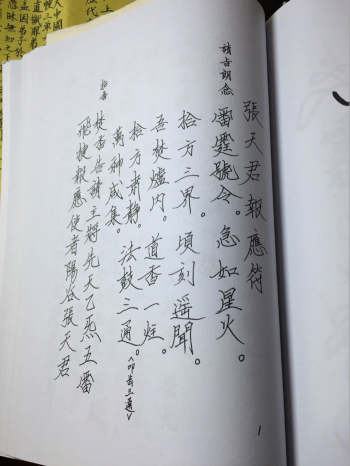 張天君報應符
請告朗念
雷霆號令。急如星火。
拾方三界。頃刻遥聞。
吾焚爐內。道香一炷。
拾方肅靜。法鼓三通。<叩齒三通>
萬神咸集。
拈香
焚香告請主將先天乙炁五雷
飛捷報應使者陽谷張天君
1